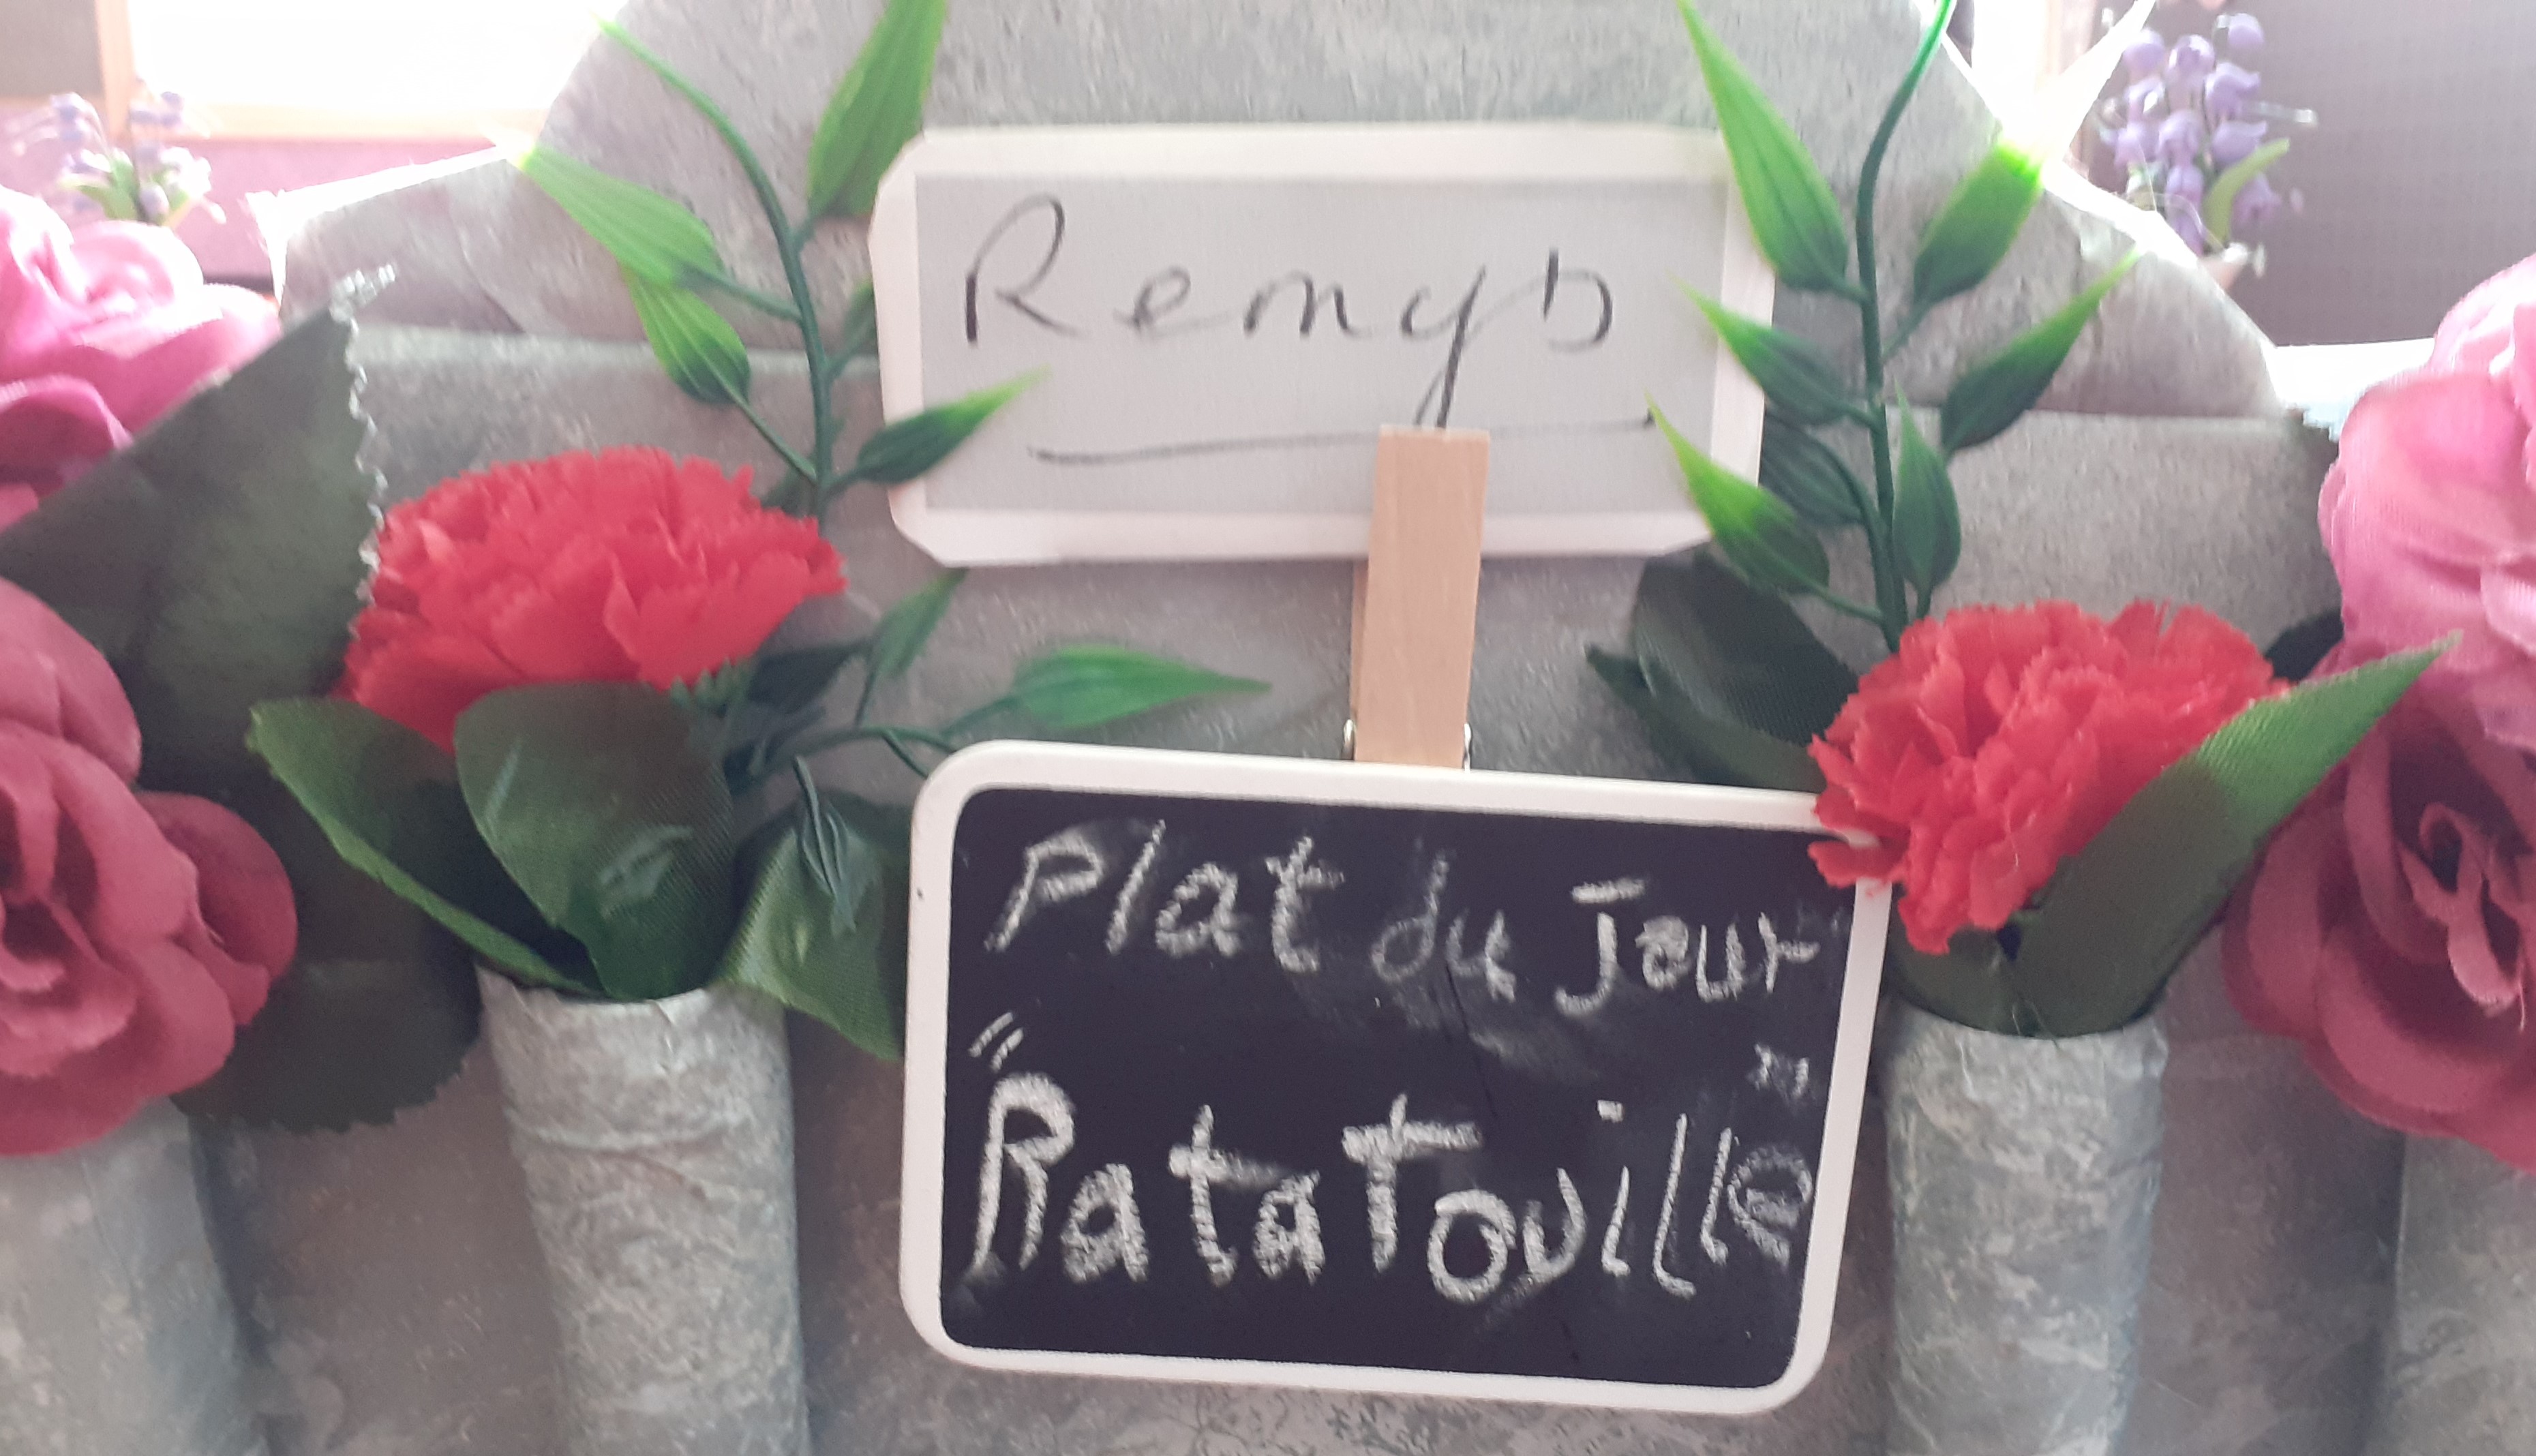 Remy's
Plat du Jour
"Ratatouille"